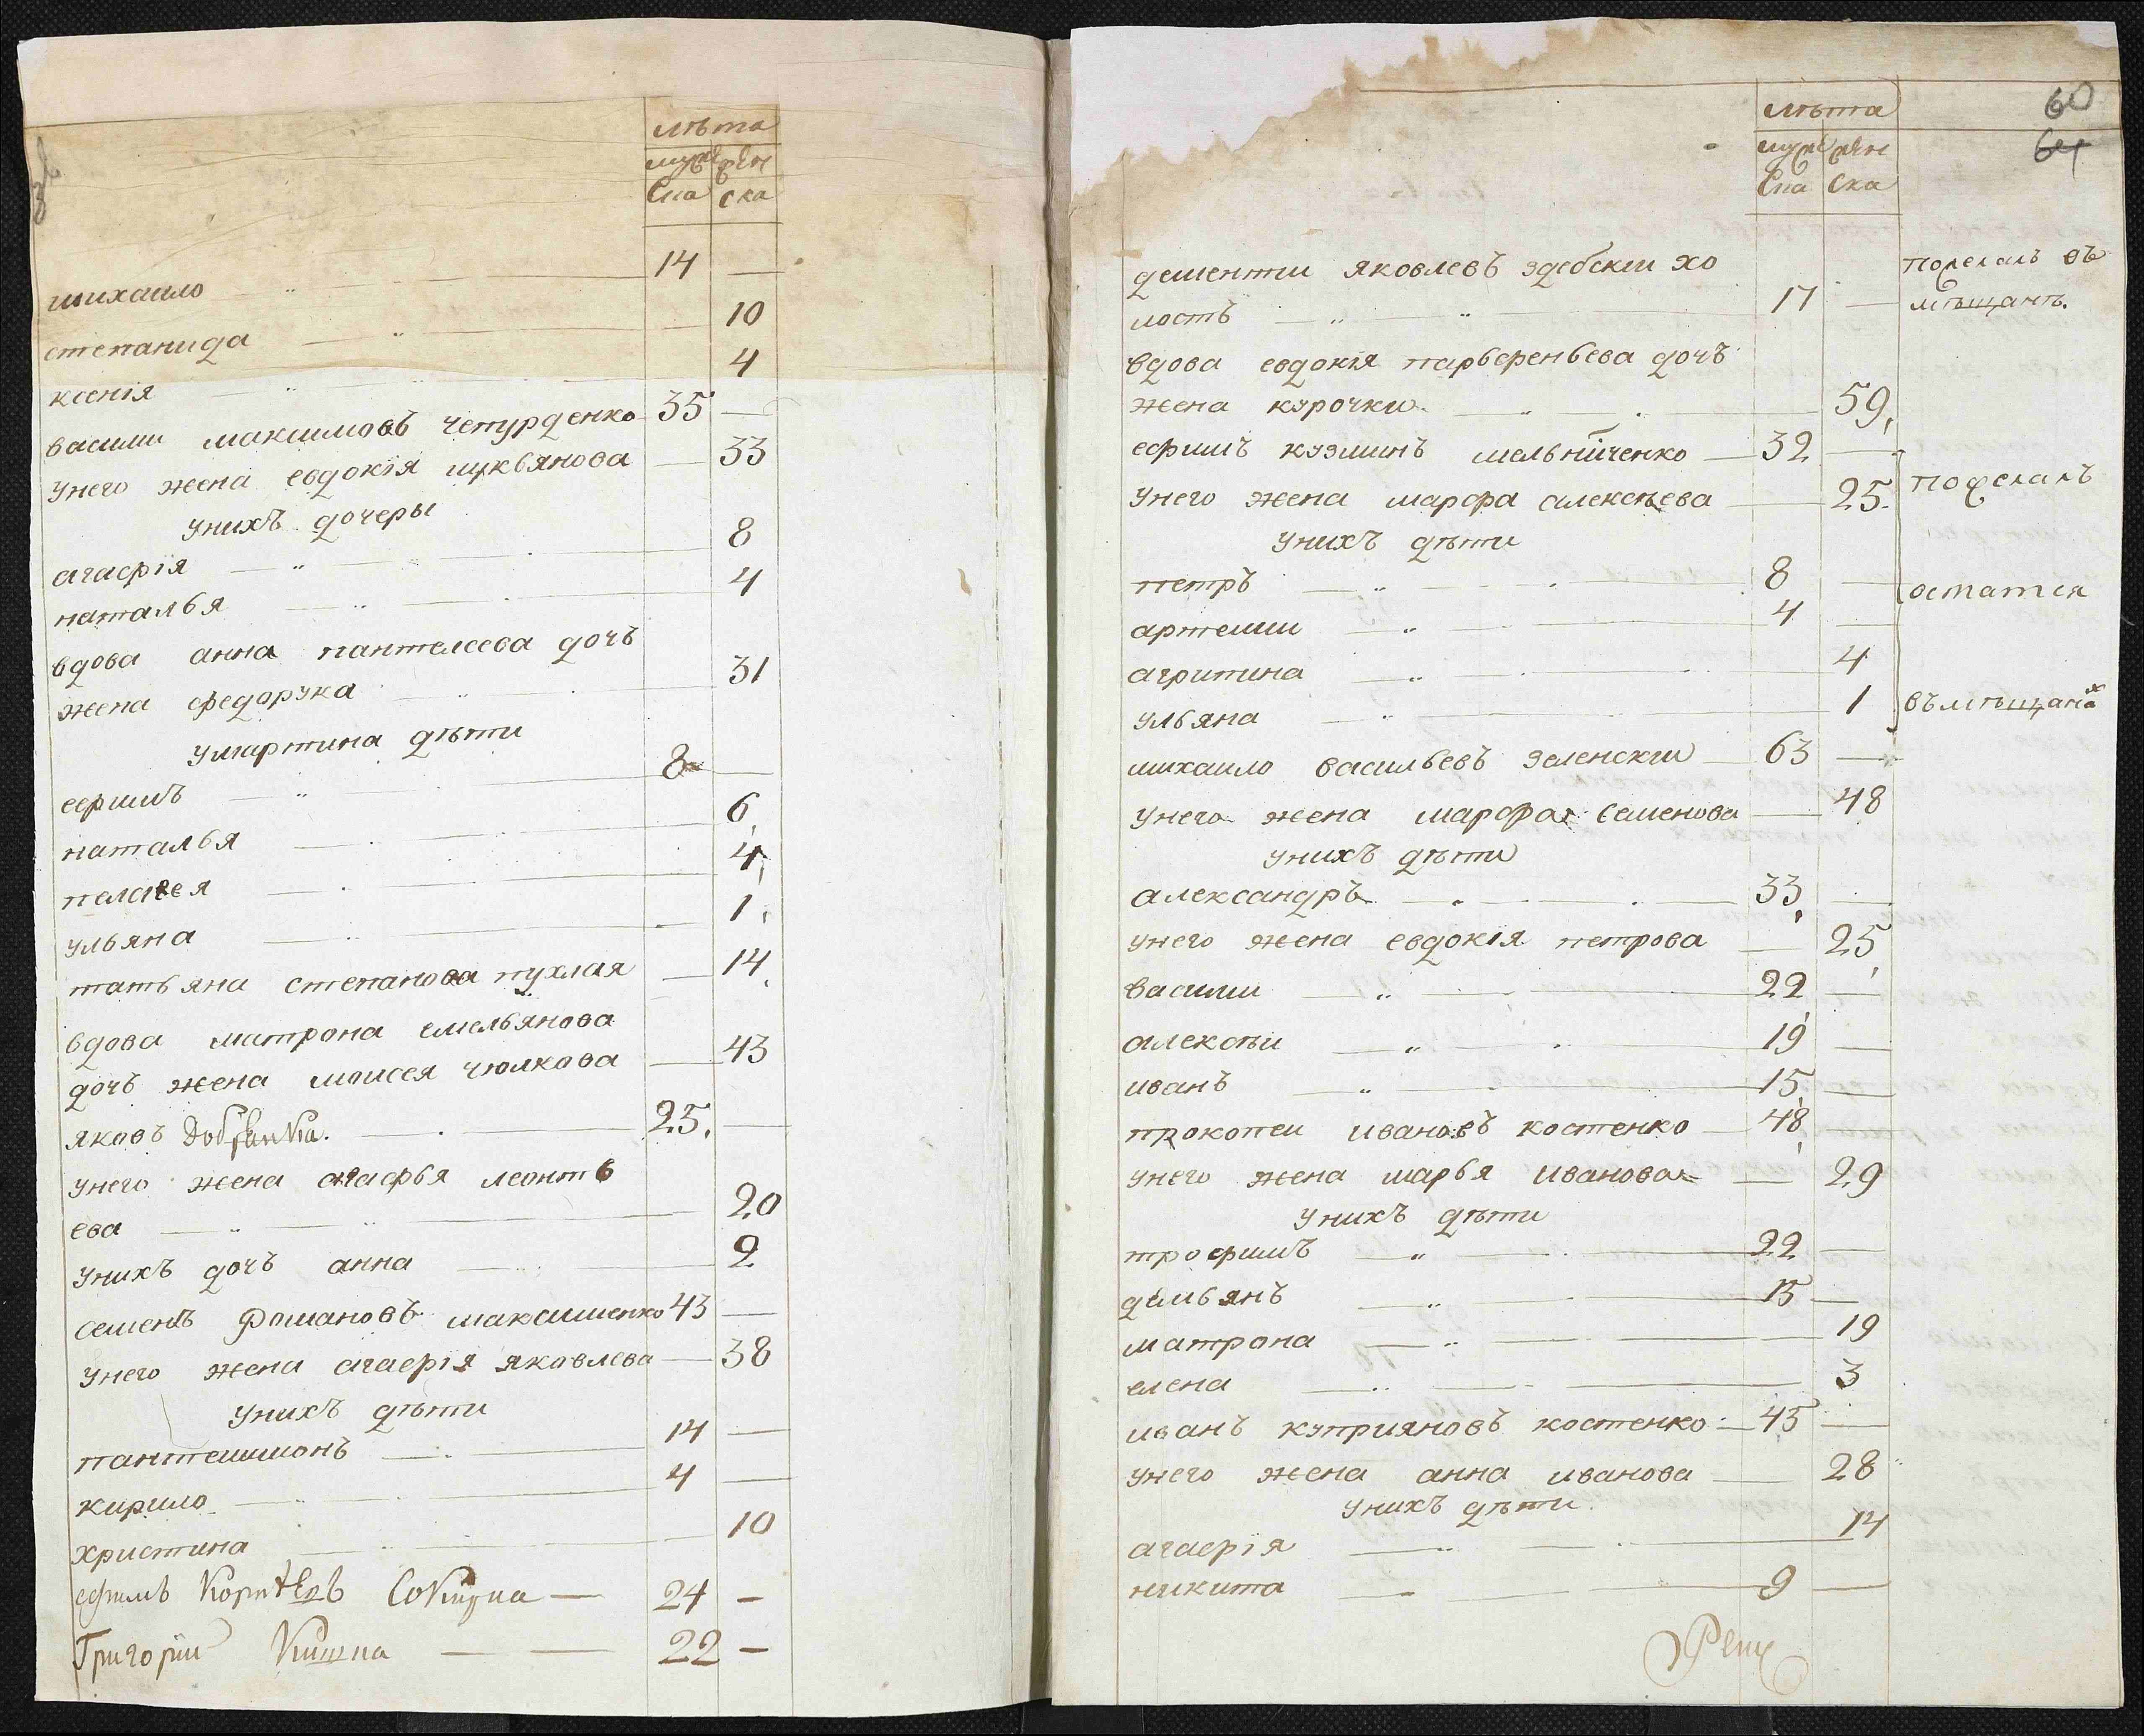 лѣта
мужеска женска
михаило 14
степанида 10
ксенїя 4
васили максимовъ чепурденко 35
унего жена евдокїя лукьянова 33
унихъ дочеры
агафїя 8
наталья 4
вдова анна пантелеева дочъ
жена федорука 31
умартина дѣти
ефимъ 8
наталья 6
пелагея 4
ульяна 1
татьяна степанова пухлая 14
вдова матрона емельянова
дочъ жена моисея чюлкова 43
яковъ 25
унего жена агафья леонть
ева 20
унихъ дочъ анна 2
семенъ романовъ максименко 43
унего жена агафїя яковлева 38
унихъ дѣти
пантелимонъ 14
кирило 4
христина 10
ефимъ 24
Григорїи Кишка 22
60
64
лѣта
мужеска женска
дементи яковлевъ здебски хо
лостъ 17
вдова евдокїя парьфеньева дочъ
жена курочки 59
ефимъ кузминъ мельниченко 32
унего жена марфа алексѣева 25
унихъ дѣти
петръ 8
артеми 4
агрипина 4
ульяна 1
михаило васильевъ зеленски 63
унего жена марфа семенова 48
унихъ дѣти
александръ 33
унего жена евдокїя петрова 25
васили 22
алексѣи 19
иванъ 15
прокопеи ивановъ костенко 48
унего жена марья иванова 29
унихъ дѣти
трофимъ 22
демьянъ 15
матрона 19
елена 3
иванъ куприяновъ костенко 45
унего жена анна иванова 28
унихъ дѣти
агафїя 14
никита 9
пожелалъ въ
мѣщанѣ.
пожелалъ
остатся
въмѣщанах